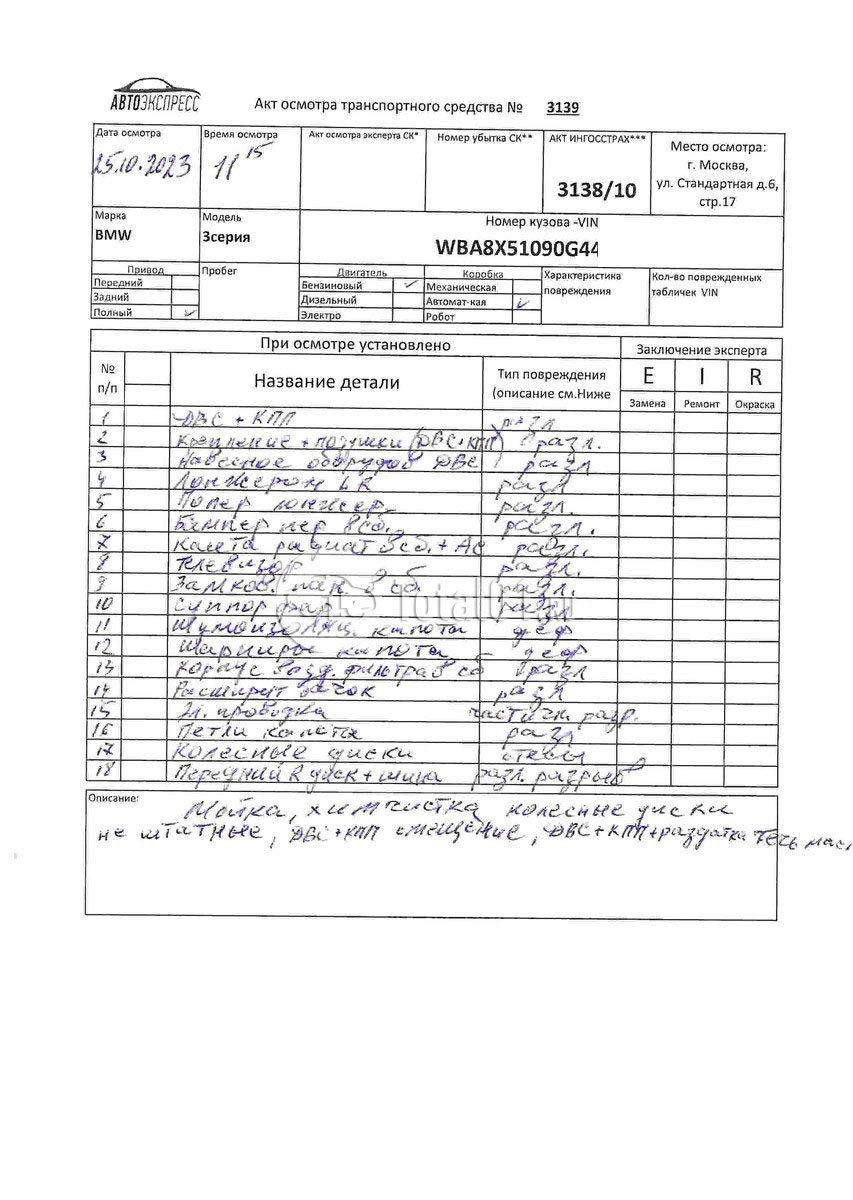 АВТОЭКСПРЕСС
Акт осмотра транспортного средства № 3139
Дата осмотра
25.10.2023
Время осмотра
11 15
Акт осмотра эксперта СК*
Номер убытка СК**
АКТ ИНГОССТРАХ***
3138/10
Место осмотра:
г. Москва,
ул. Стандартная д.6,
стр.17
Марка
BMW
Модель
3серия
Номер кузова -VIN
WBA8X51090G44
Привод
Передний
Задний
Полный ✓
Пробег
Двигатель
Бензиновый ✓
Дизельный
Электро
Коробка
Механическая
Автомат-кая ✓
Робот
Характеристика
повреждения
Кол-во поврежденных
табличек VIN
При осмотре установлено
Заключение эксперта
№
п/п
Название детали
Тип повреждения
(описание см.Ниже
E I R
Замена Ремонт Окраска
1 ДВС + КПП разл
2 крепление + подушки (ДВС+КПП) разл.
3 Навесное оборудов ДВС разл
4 Лонжерон LR разл
5 Попер лонжер. разл.
6 Бампер пер в сб. разл.
7 Касета радиат в сб. + АС разл.
8 Телевизор разл.
9 Замков. пан. в сб. разл.
10 Суппор фар разл
11 Шумоизоляц. капота деф
12 Шарниры капота деф
13 Корпус возд. фильтра в сб разл
14 Расширит бачок разл
15 Эл. проводка частичн. разр.
16 Петли капота разл
17 Колесные диски
18 Передний R диск + шина разл. разрыв
Описание:
Мойка, химчистка, колесные диски
не штатные, ДВС+КПП смещение, ДВС+КПП+раздатка течь мас
Total01.ru